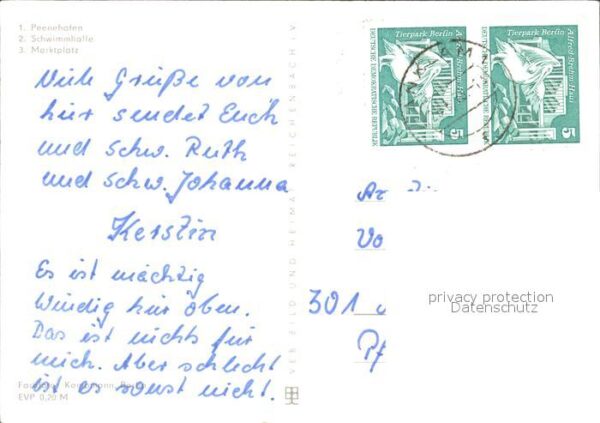 1. Peenehafen
2. Schwimmhalle
3. Marktplatz
Viele Grüße von
hier sendet Euch
und Schw. Ruth
und Schw. Johanna
Kerstin
Es ist mächtig
Windig hier oben.
Das ist nichts für
mich. Aber schlecht
ist es sonst nicht.
EVP 0,20 M
VEB BILD UND HEIMAT REICHENBACH i. V.
Tierpark Berlin
Alfred-Brehm-Haus
DEUTSCHE DEMOKRATISCHE REPUBLIK
5
Tierpark Berlin
Alfred-Brehm-Haus
DEUTSCHE DEMOKRATISCHE REPUBLIK
5
ANKLAM
An
Vo
301
Pf
privacy protection
Datenschutz